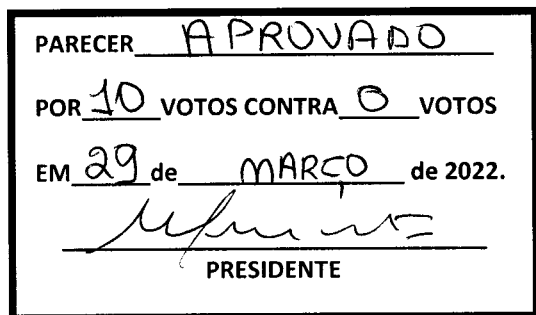 PARECER APROVADO
POR 10 VOTOS CONTRA 0 VOTOS
EM 29 de MARÇO de 2022.
PRESIDENTE